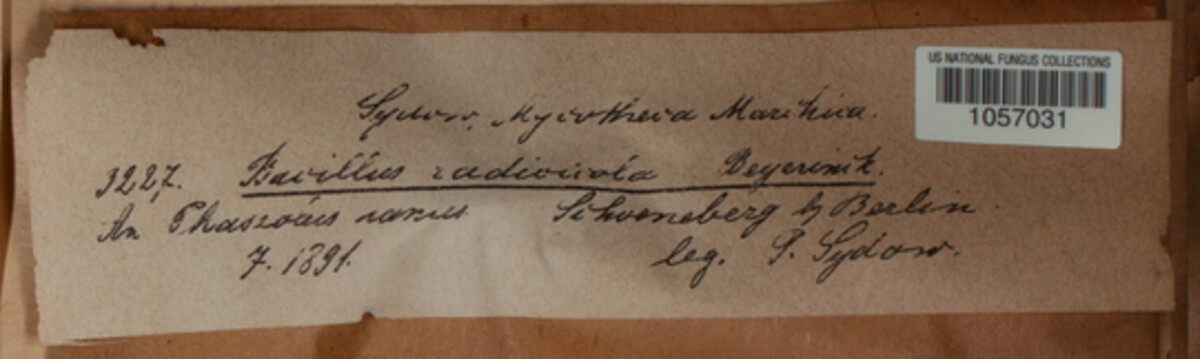 US NATIONAL FUNGUS COLLECTIONS
1057031
Sydow, Mycotheca Marchica.
3227. Bacillus radicicola Beyerinck.
An Phaseolus nanus Schoeneberg b/ Berlin
7. 1891. leg. P. Sydow.